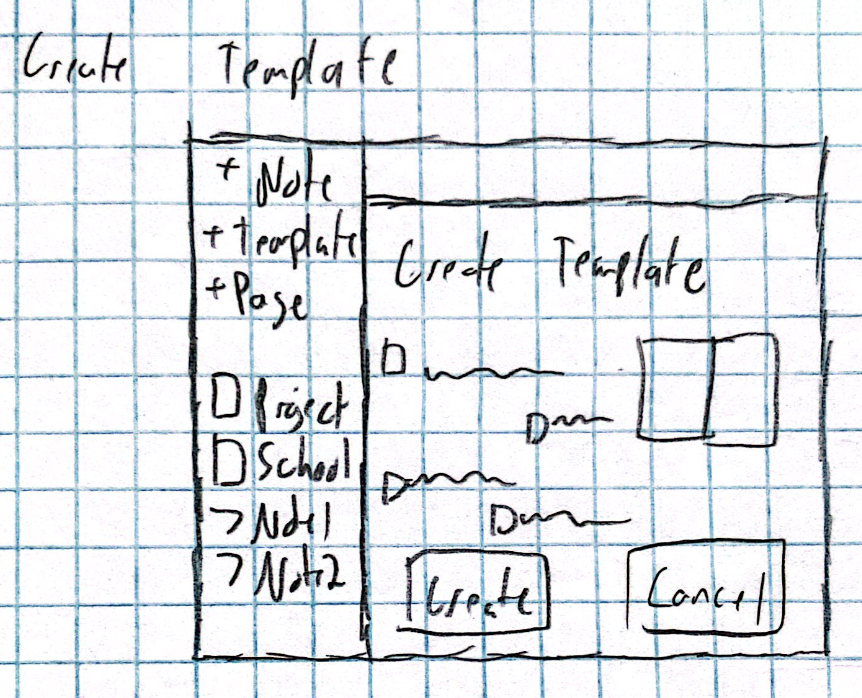 Create Template
+ Note
+ template
+ Page
Project
School
> Note1
> Note2
Create Template
Create
Cancel